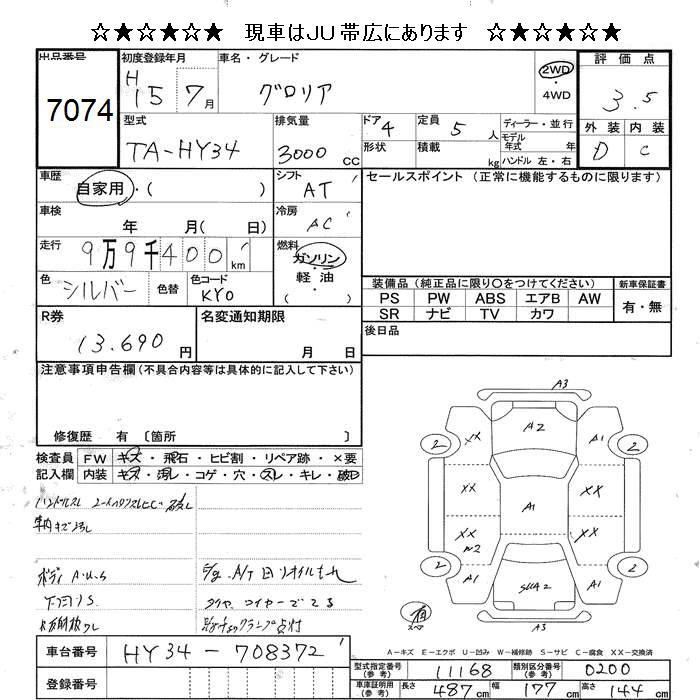 ☆★☆★☆★ 現車はJU帯広にあります ☆★☆★☆★
出品番号 7074
初度登録年月 H 15 7月
車名・グレード グロリア
2WD・4WD
評価点 3.5
外装 D 内装 C
型式 TA-HY34
排気量 3000 CC
ドア 4
形状
定員 5 人
積載 kg
ディーラー・並行
モデル年式 年式
ハンドル 左・右
車歴 自家用・( )
シフト AT
車検 年 月( 日)
冷房 AC
走行 9万9千400 km
燃料 ガソリン・軽油
色 シルバー 色替
色コード KY0
セールスポイント (正常に機能するものに限ります)
装備品 (純正品に限り〇をつけてください) 新車保証書
PS PW ABS エアB AW 有・無
SR ナビ TV カワ
後日品
R券 13.690 円
名変通知期限 月 日
注意事項申告欄 (不具合内容等は具体的に記入して下さい)
修復歴 有 〔箇所 〕
検査員 FW キズ・飛石・ヒビ割・リペア跡・×要
記入欄 内装 キズ・汚れ・コゲ・穴・スレ・キレ・破れ
ハンドルスレ
ボディ A.U.S
下回りS
タイヤ
A3
A2
XX A1
2 2
XX A1 XX
XX XX
W2
2 2
A1 A1
A3
A-キズ E-エクボ U-凹み W-補修跡 S-サビ C-腐食 XX-交換済
車台番号 HY34-708372
登録番号
型式指定番号 (参考) 11168 類別区分番号 (参考) 0200
車庫証明用 (参考) 長さ 487 cm 幅 177 cm 高さ 144 cm